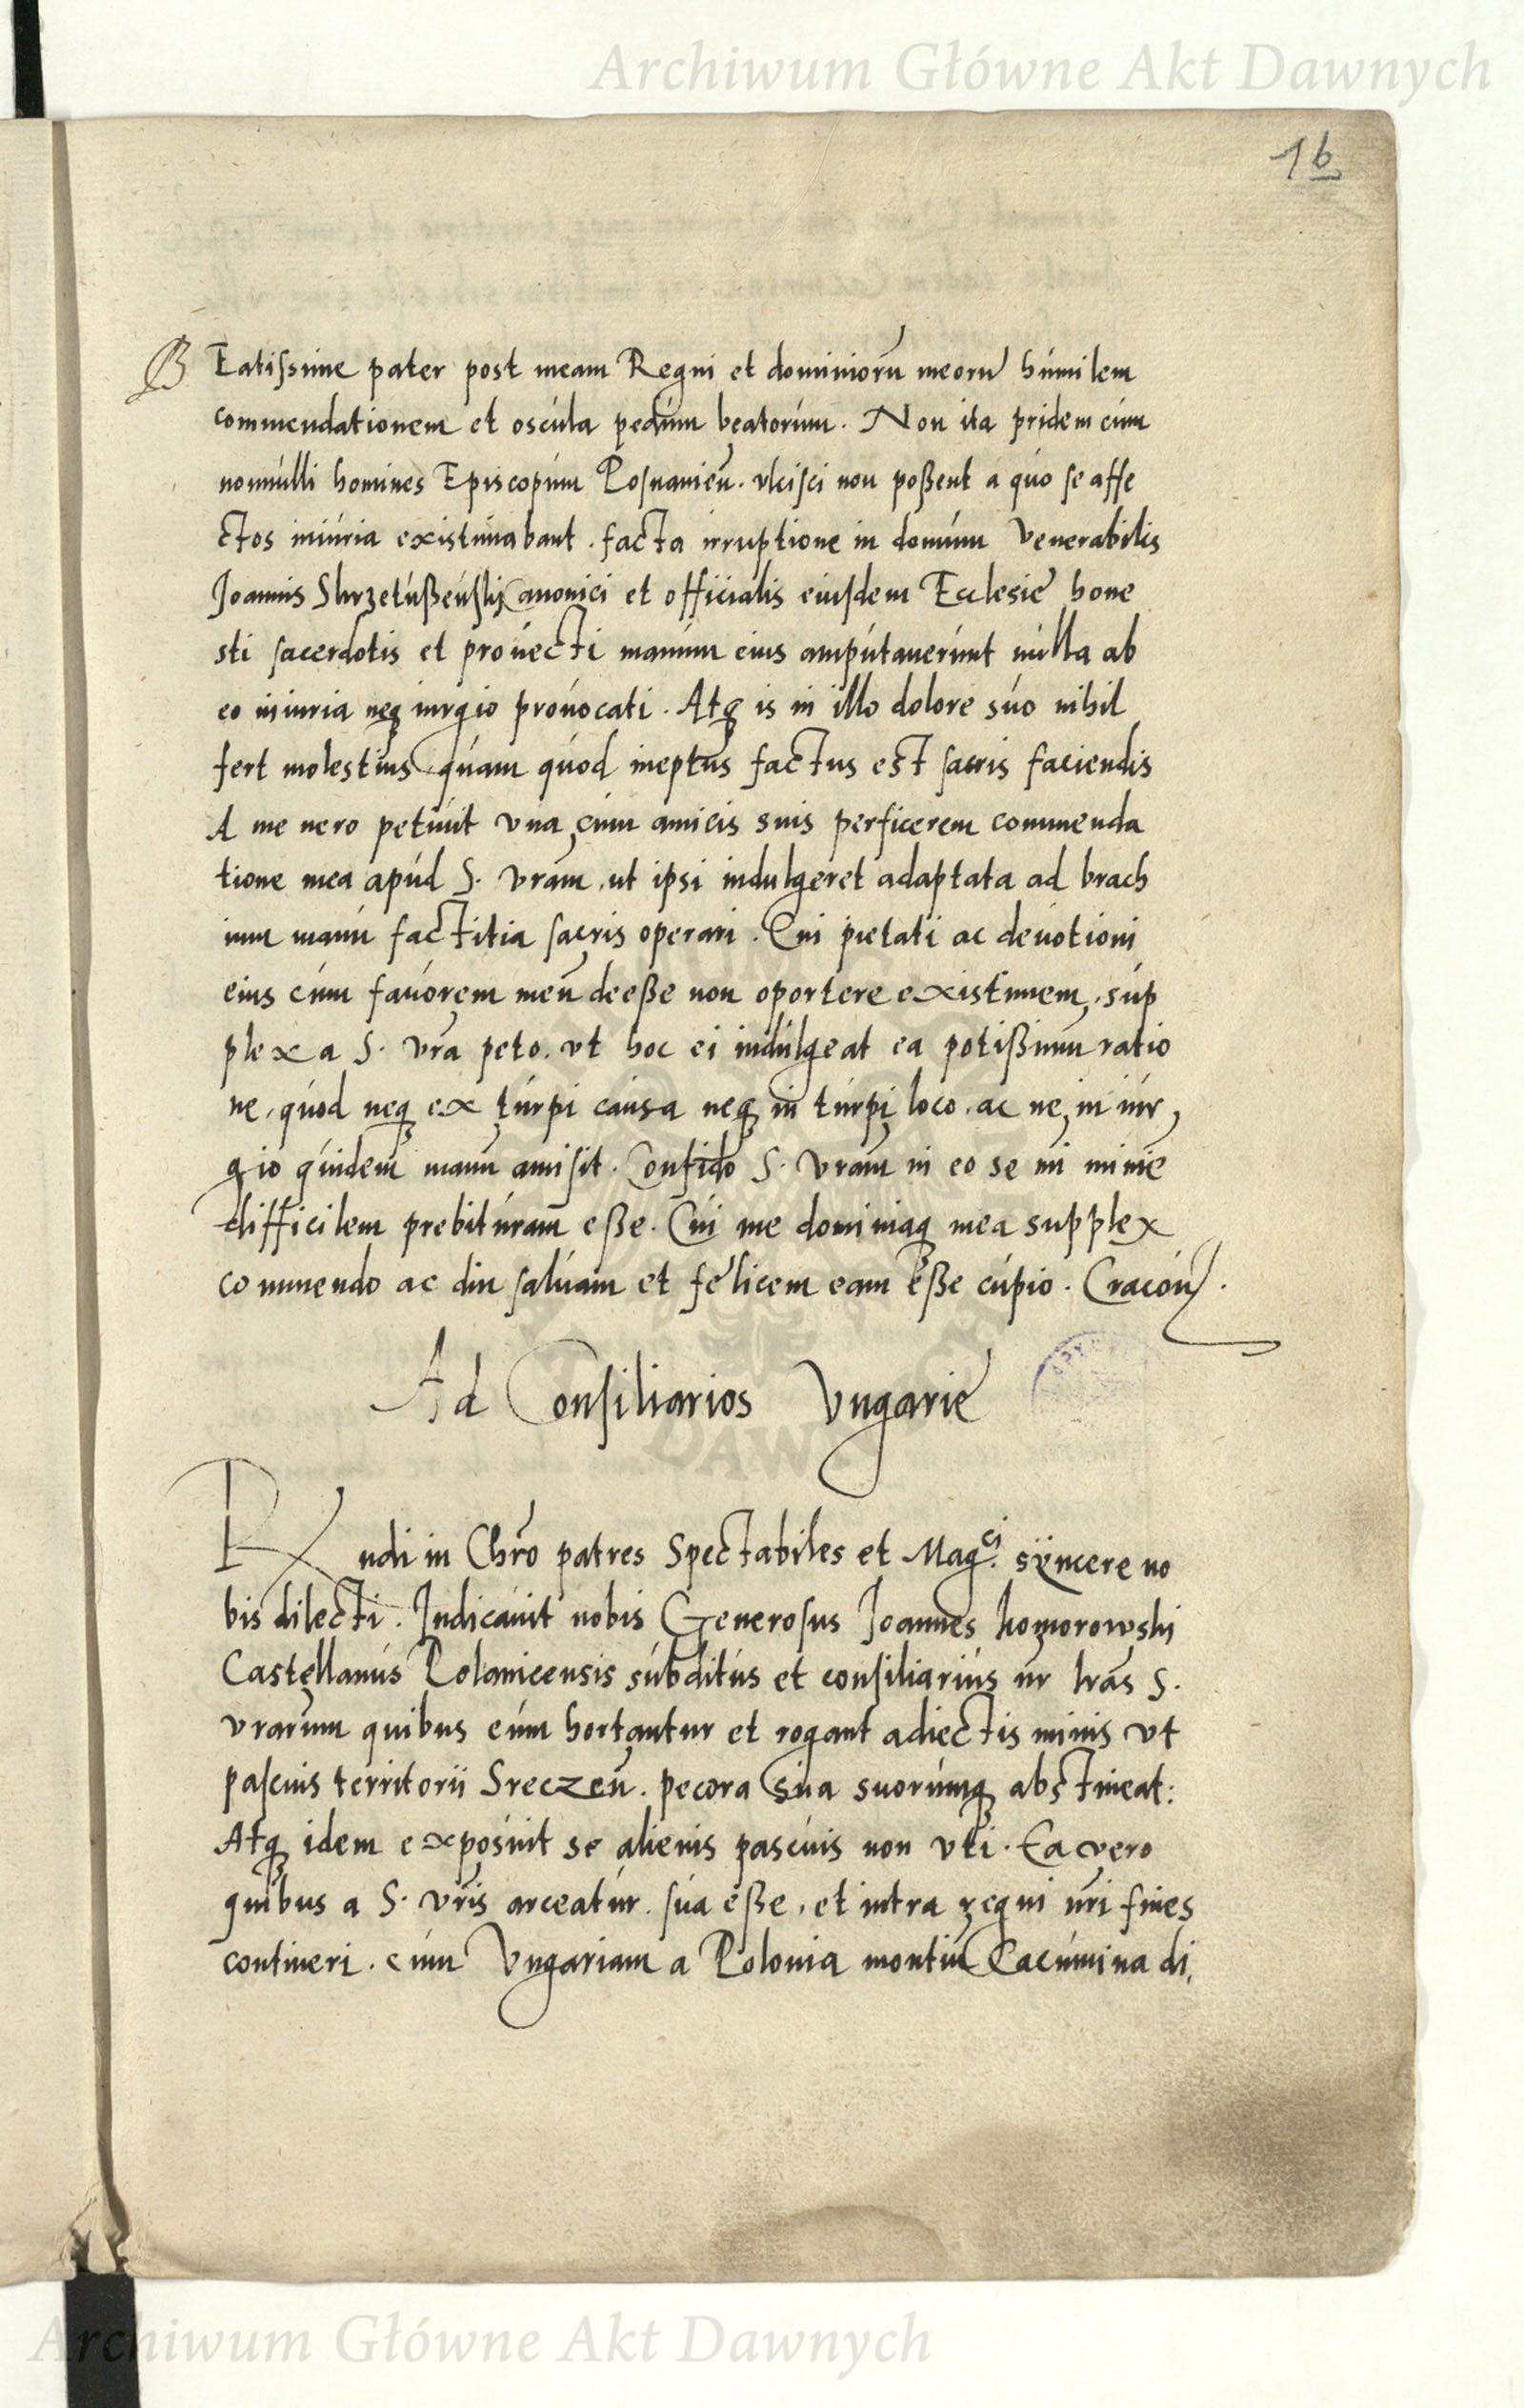 Archiwum Główne Akt Dawnych
16
BEatissime pater post meam Regni et dominiorū meorū humilem
commendationem et oscula pedum beatorum. Non ita pridem cum
nonnulli homines Episcopum Posnanien̄. ulcisci non possent a quo se affe
ctos iniuria existimabant. facta irruptione in domum Venerabilis
Joannis Skrzetussewski Canonici et officialis eiusdem Ecclesie hone
sti sacerdotis et provecti manum eius amputauerunt nulla ab
eo iniuria neq iurgio prouocati. Atq is in illo dolore suo nihil
fert molestius quam quod ineptus factus est sacris faciendis
A me uero petiuit una cum amicis suis perficerem commenda
tione mea apud S. Vram, ut ipsi indulgeret adaptata ad brach
ium manu factitia sacris operari. Cui pietati ac deuotioni
eius cum fauorem meū deesse non oportere existimem, sup
plex a S. Vra peto, ut hoc ei indulgeat ea potissimum ratio
ne, quod neq ex turpi causa neq in turpi loco, ac ne in iur,
gio quidem manū amisit. Confido S. Vram in eo se mi minie
difficilem prebituram esse. Cui me dominiaq mea supplex
commendo ac diu saluam et felicem eam esse cupio. Cracou.
Ad Consiliarios Vngarie
Rndi in Chro patres Spectabiles et Mag.ci syncere no
bis dilecti. Indicauit nobis Generosus Joannes komorowski
Castellanus Polanicensis subditus et consiliarius nr lras S.
vrarum quibus eum hortantur et rogant adiectis minis vt
pascuis territorii Sreczen̄. pecora sua suorumq abstineat:
Atq idem exposuit se alienis pascuis non vti. Ea vero
quibus a S. vris arceatur, sua esse, et intra regni nri fines
contineri, cum Vngariam a Polonia montiū Cacumina di,
Archiwum Główne Akt Dawnych